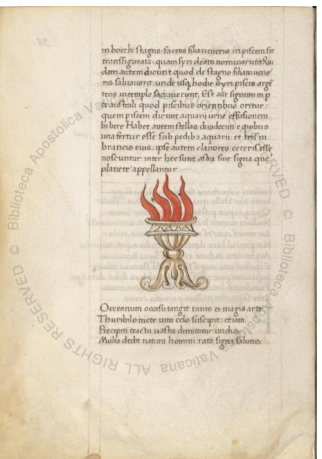 in boethi stagno: saceros filia veneris in piscem sit
transfigurata: quam syri deam nominaverunt Qui
dam autem dicunt quod de stagno filiam vene
ris salvaverint: unde usq; hodie syri pisces argē
teos in templo sacraverunt. Est alit signum in p
te australi quod piscibus orientibus oritur
quem piscem dicunt aquarii urne effusionem
bibere Habet autem stellas duodecim e quibus
una fertur esse sub pedib3 aquarii: et tres su
brancio eius: ipse autem clariores ceteris esse
noscuntur inter hec sunt astra sive signa que
planete appellantur
Occeanum occasu tangit tanto et magis arte
Thuribulo metē umi celo suscipit: etiam
Precipiti tractu vasto dimittitur undis
Multa dedit natura homini rata signa salutis
© Biblioteca Apostolica Vaticana ALL RIGHTS RESERVED